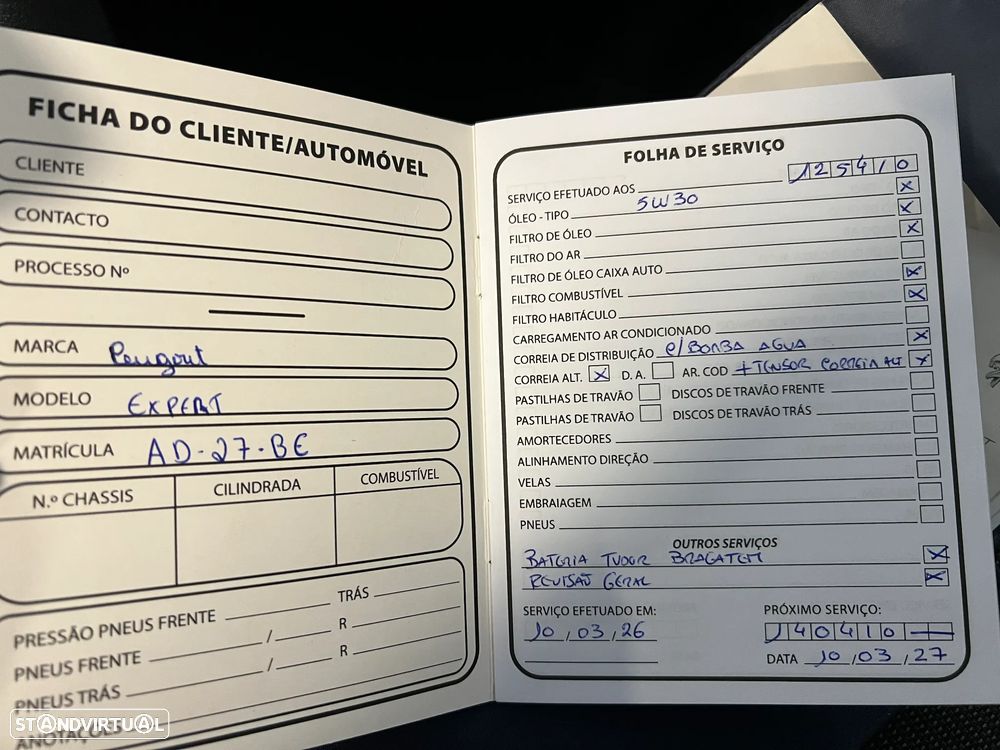 FICHA DO CLIENTE/AUTOMÓVEL
CLIENTE
CONTACTO
PROCESSO Nº
MARCA Peugeot
MODELO EXPERT
MATRÍCULA AD-27-BE
N.º CHASSIS CILINDRADA COMBUSTÍVEL
PRESSÃO PNEUS FRENTE TRÁS
PNEUS FRENTE / R
PNEUS TRÁS / R
ANOTAÇÕES
FOLHA DE SERVIÇO
SERVIÇO EFETUADO AOS 125410
ÓLEO - TIPO 5W30 X
FILTRO DE ÓLEO X
FILTRO DO AR X
FILTRO DE ÓLEO CAIXA AUTO
FILTRO COMBUSTÍVEL X
FILTRO HABITÁCULO X
CARREGAMENTO AR CONDICIONADO
CORREIA DE DISTRIBUIÇÃO C/BOMBA AGUA X
CORREIA ALT. X D. A. AR. COD + TENSOR CORREIA ALT X
PASTILHAS DE TRAVÃO DISCOS DE TRAVÃO FRENTE
PASTILHAS DE TRAVÃO DISCOS DE TRAVÃO TRÁS
AMORTECEDORES
ALINHAMENTO DIREÇÃO
VELAS
EMBRAIAGEM
PNEUS
OUTROS SERVIÇOS
BATERIA TUDOR X
REVISAÕ GERAL X
SERVIÇO EFETUADO EM: PRÓXIMO SERVIÇO:
10,03,26 140410
DATA 10,03,27
STANDVIRTUAL